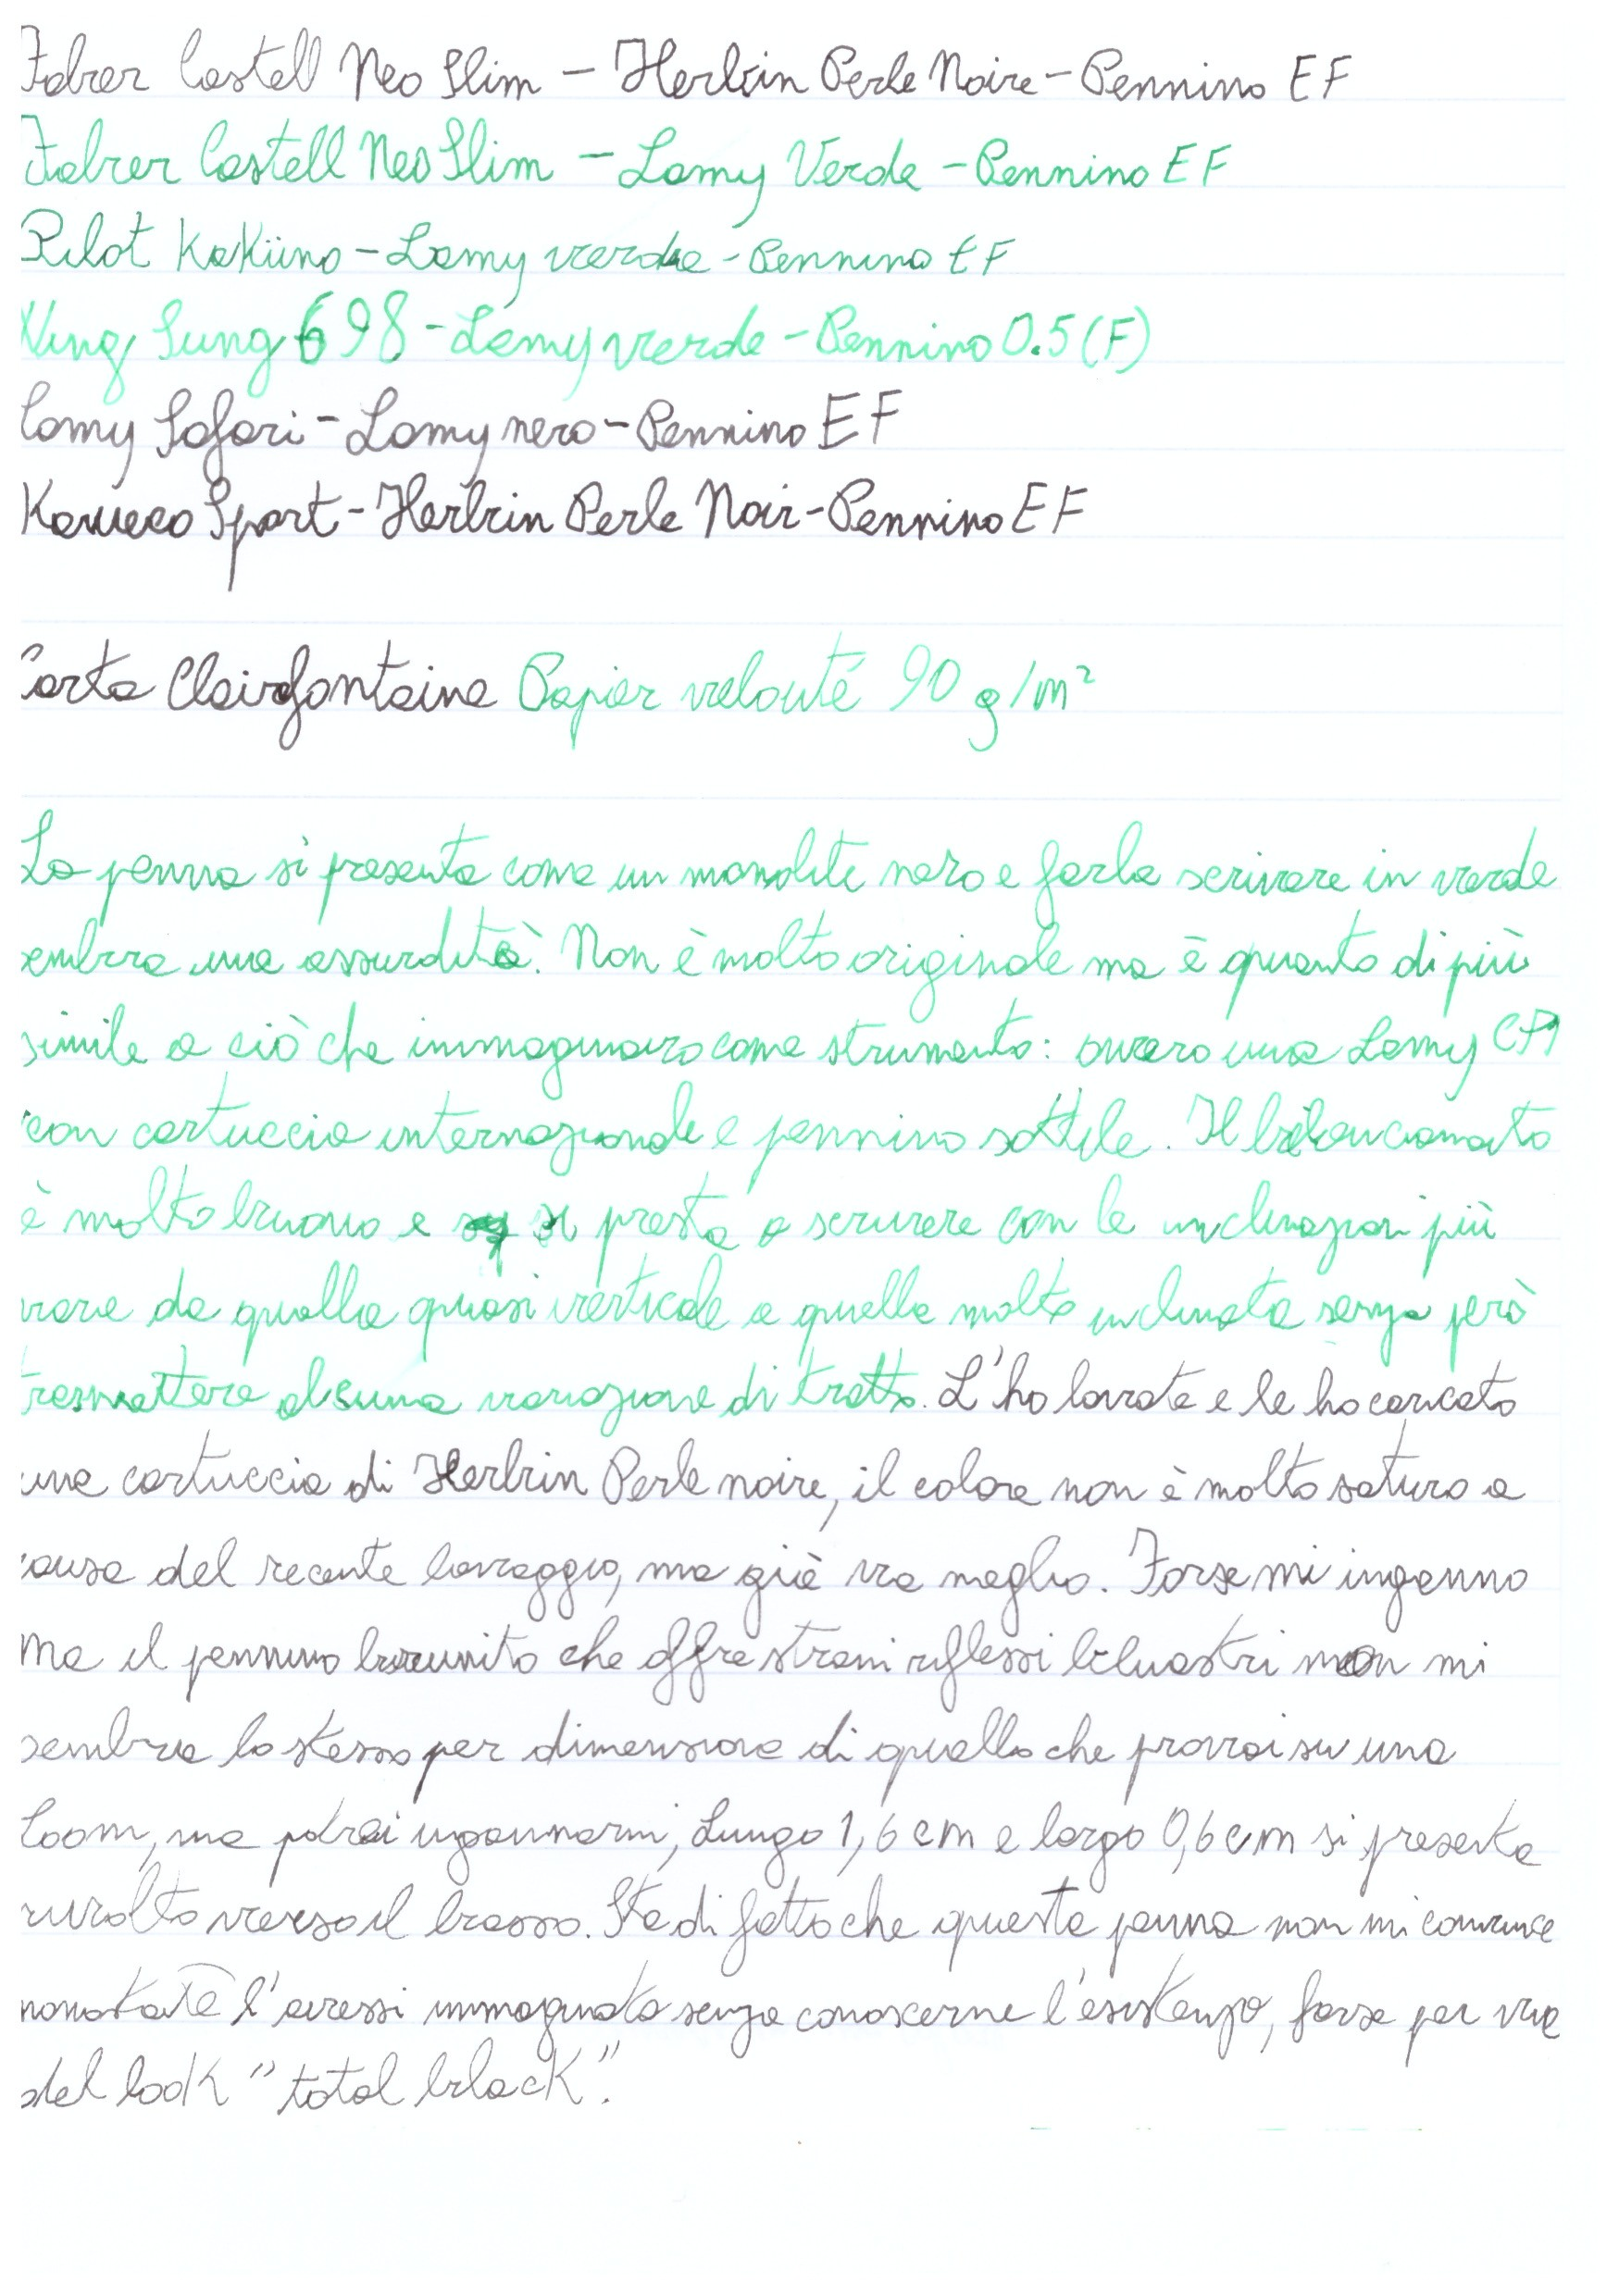 Faber Castell Neo Slim – Herbin Perle Noire – Pennino EF
Faber Castell Neo Slim – Lamy Verde – Pennino EF
Pilot Kaküno – Lamy verde – Pennino EF
Wing Sung 698 – Lamy verde – Pennino 0.5 (F)
Lamy Safari – Lamy nero – Pennino EF
Kaweco Sport – Herbin Perle Noir – Pennino EF
Carta Clairefontaine Papier velouté 90 g/m²
La penna si presenta come un monolite nero e farla scrivere in verde
sembra una assurdità. Non è molto originale ma è quanto di più
simile a ciò che immaginavo come strumento: ovvero una Lamy CP1
con cartuccia internazionale e pennino sottile. Il bilanciamento
è molto buono e si presta a scrivere con le inclinazioni più
varie da quella quasi verticale a quella molto inclinata senza però
trasmettere alcuna variazione di tratto. L'ho lavata e le ho caricato
una cartuccia di Herbin Perle noire, il colore non è molto saturo a
causa del recente lavaggio, ma già va meglio. Forse mi inganno
ma il pennino brunito che offre strani riflessi bluastri non mi
sembra lo stesso per dimensione di quello che provai su una
Loom, ma potrei ingannarmi, Lungo 1,6 cm e largo 0,6 cm si presenta
rivolto verso il basso. Sta di fatto che questa penna non mi convince
nonostante l'avessi immaginata senza conoscerne l'esistenza, forse per via
del look "total black".